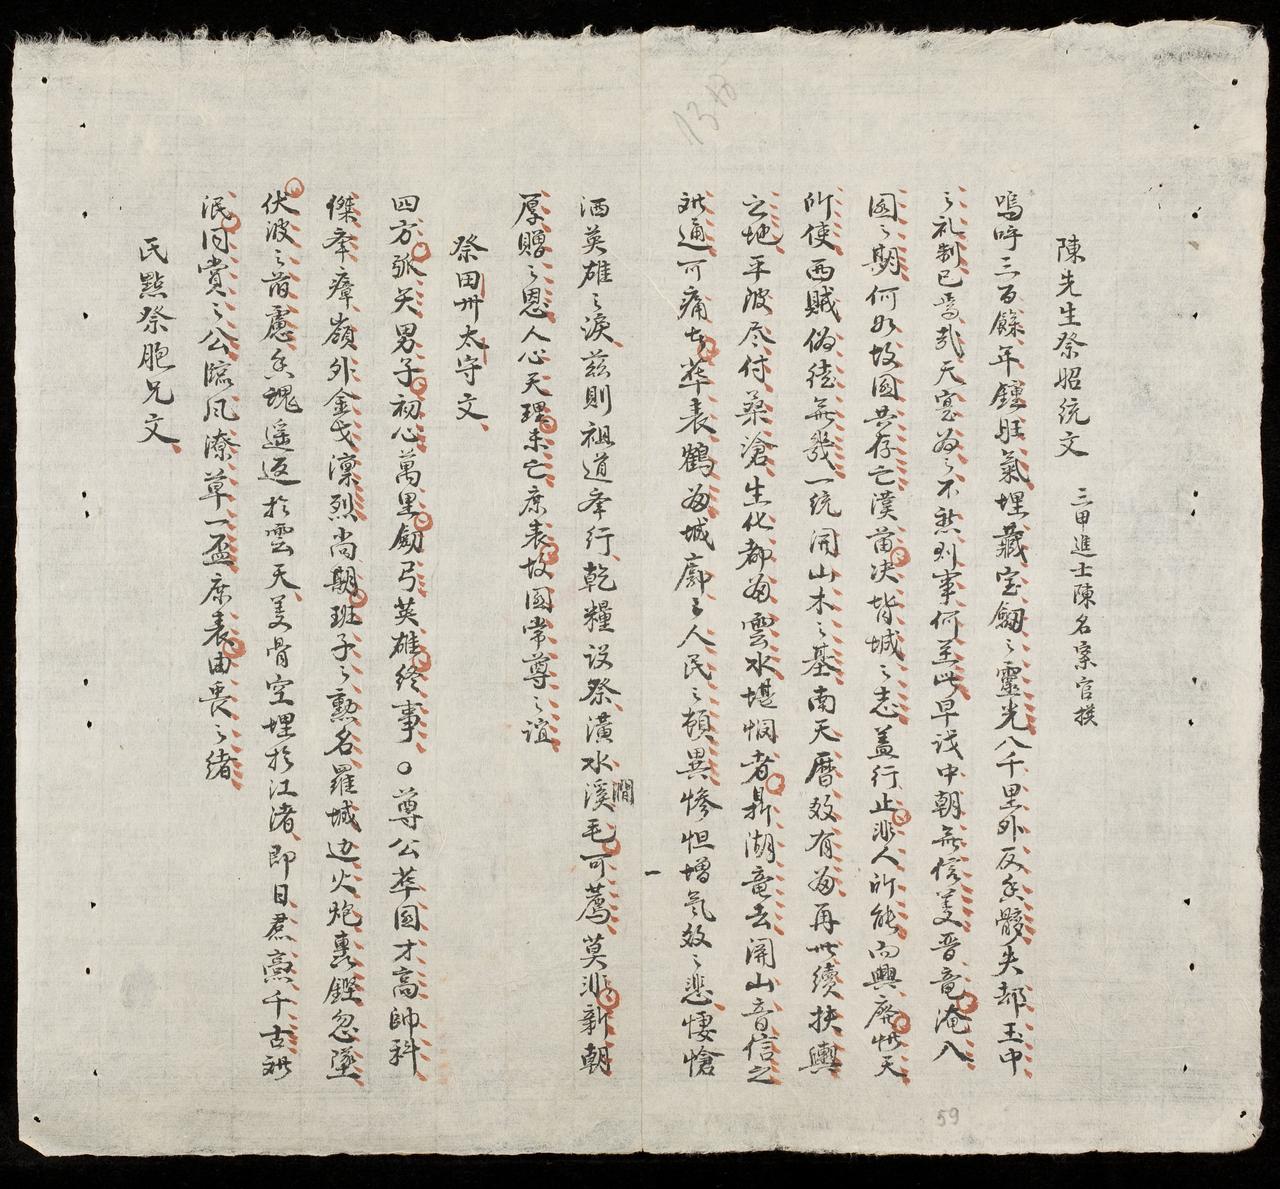 陳先生祭昭統文 三甲進士陳名案官撰
嗚呼三百餘年鍾旺氣埋藏宝劔之靈光八千里外反香骸失却玉中
之礼制已焉哉天寔為之不愁列事何並此早識中朝無信義晋竜淹八
國之期何如故國共存亡漢苗决背城之志蓋行止非人所能而興廃惟天
所使西賊偽徒無幾一統開山木之基南天曆效有為再世續扶輿
之地平波尽付桑滄生化都為雲水堪憫者鼎湖竜去開山音信之
難通可痛者華表鶴為城廓之人民之頓異惨怛増氣效之悲悽愴
洒英雄之淚茲則祖道奉行乾糧設祭潢水溪毛可薦莫非新朝
澗
厚贈之恩人心天理未亡庶表故國常尊之誼
祭田州太守文
四方弧矢男子初心萬里劔弓英雄終事○尊公華国才高帥科
傑奉瘴嶺外金戈凛烈尚期班子之勲名羅城边火炮轟鏗忽墜
伏波之前慮香魂遥返於雲天美骨空埋於江渚即日君熹千古難
泯同賞之公臨风潦草一盃庶表由喪之緒
民㸃祭胞兄文
1348
59